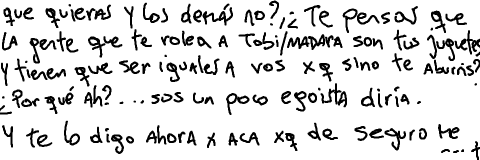 que quieras y los demás no?,¿Te pensas que
la gente que te rolea a Tobi/MADARA son tus juguetes
y tienen que ser iguales a vos xq sino te aburris?
¿Por qué Ah?... sos un poco egoista diría.
Y te lo digo ahora x aca xq de seguro me